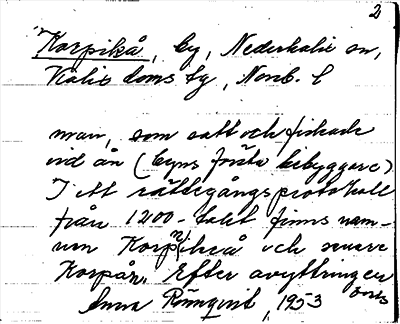 2
Korpikå, by, Nederkalix sn,
Kalix doms lg, Norrb. l
man, som satt och fiskade
vid ån (byns första bebyggare)
I ett rättegångsprotokoll
från 1200-talet finns nam-
nen Korpikeå och senare
Korpån. Efter avyttringen
Anna Rönnqvist, 1953